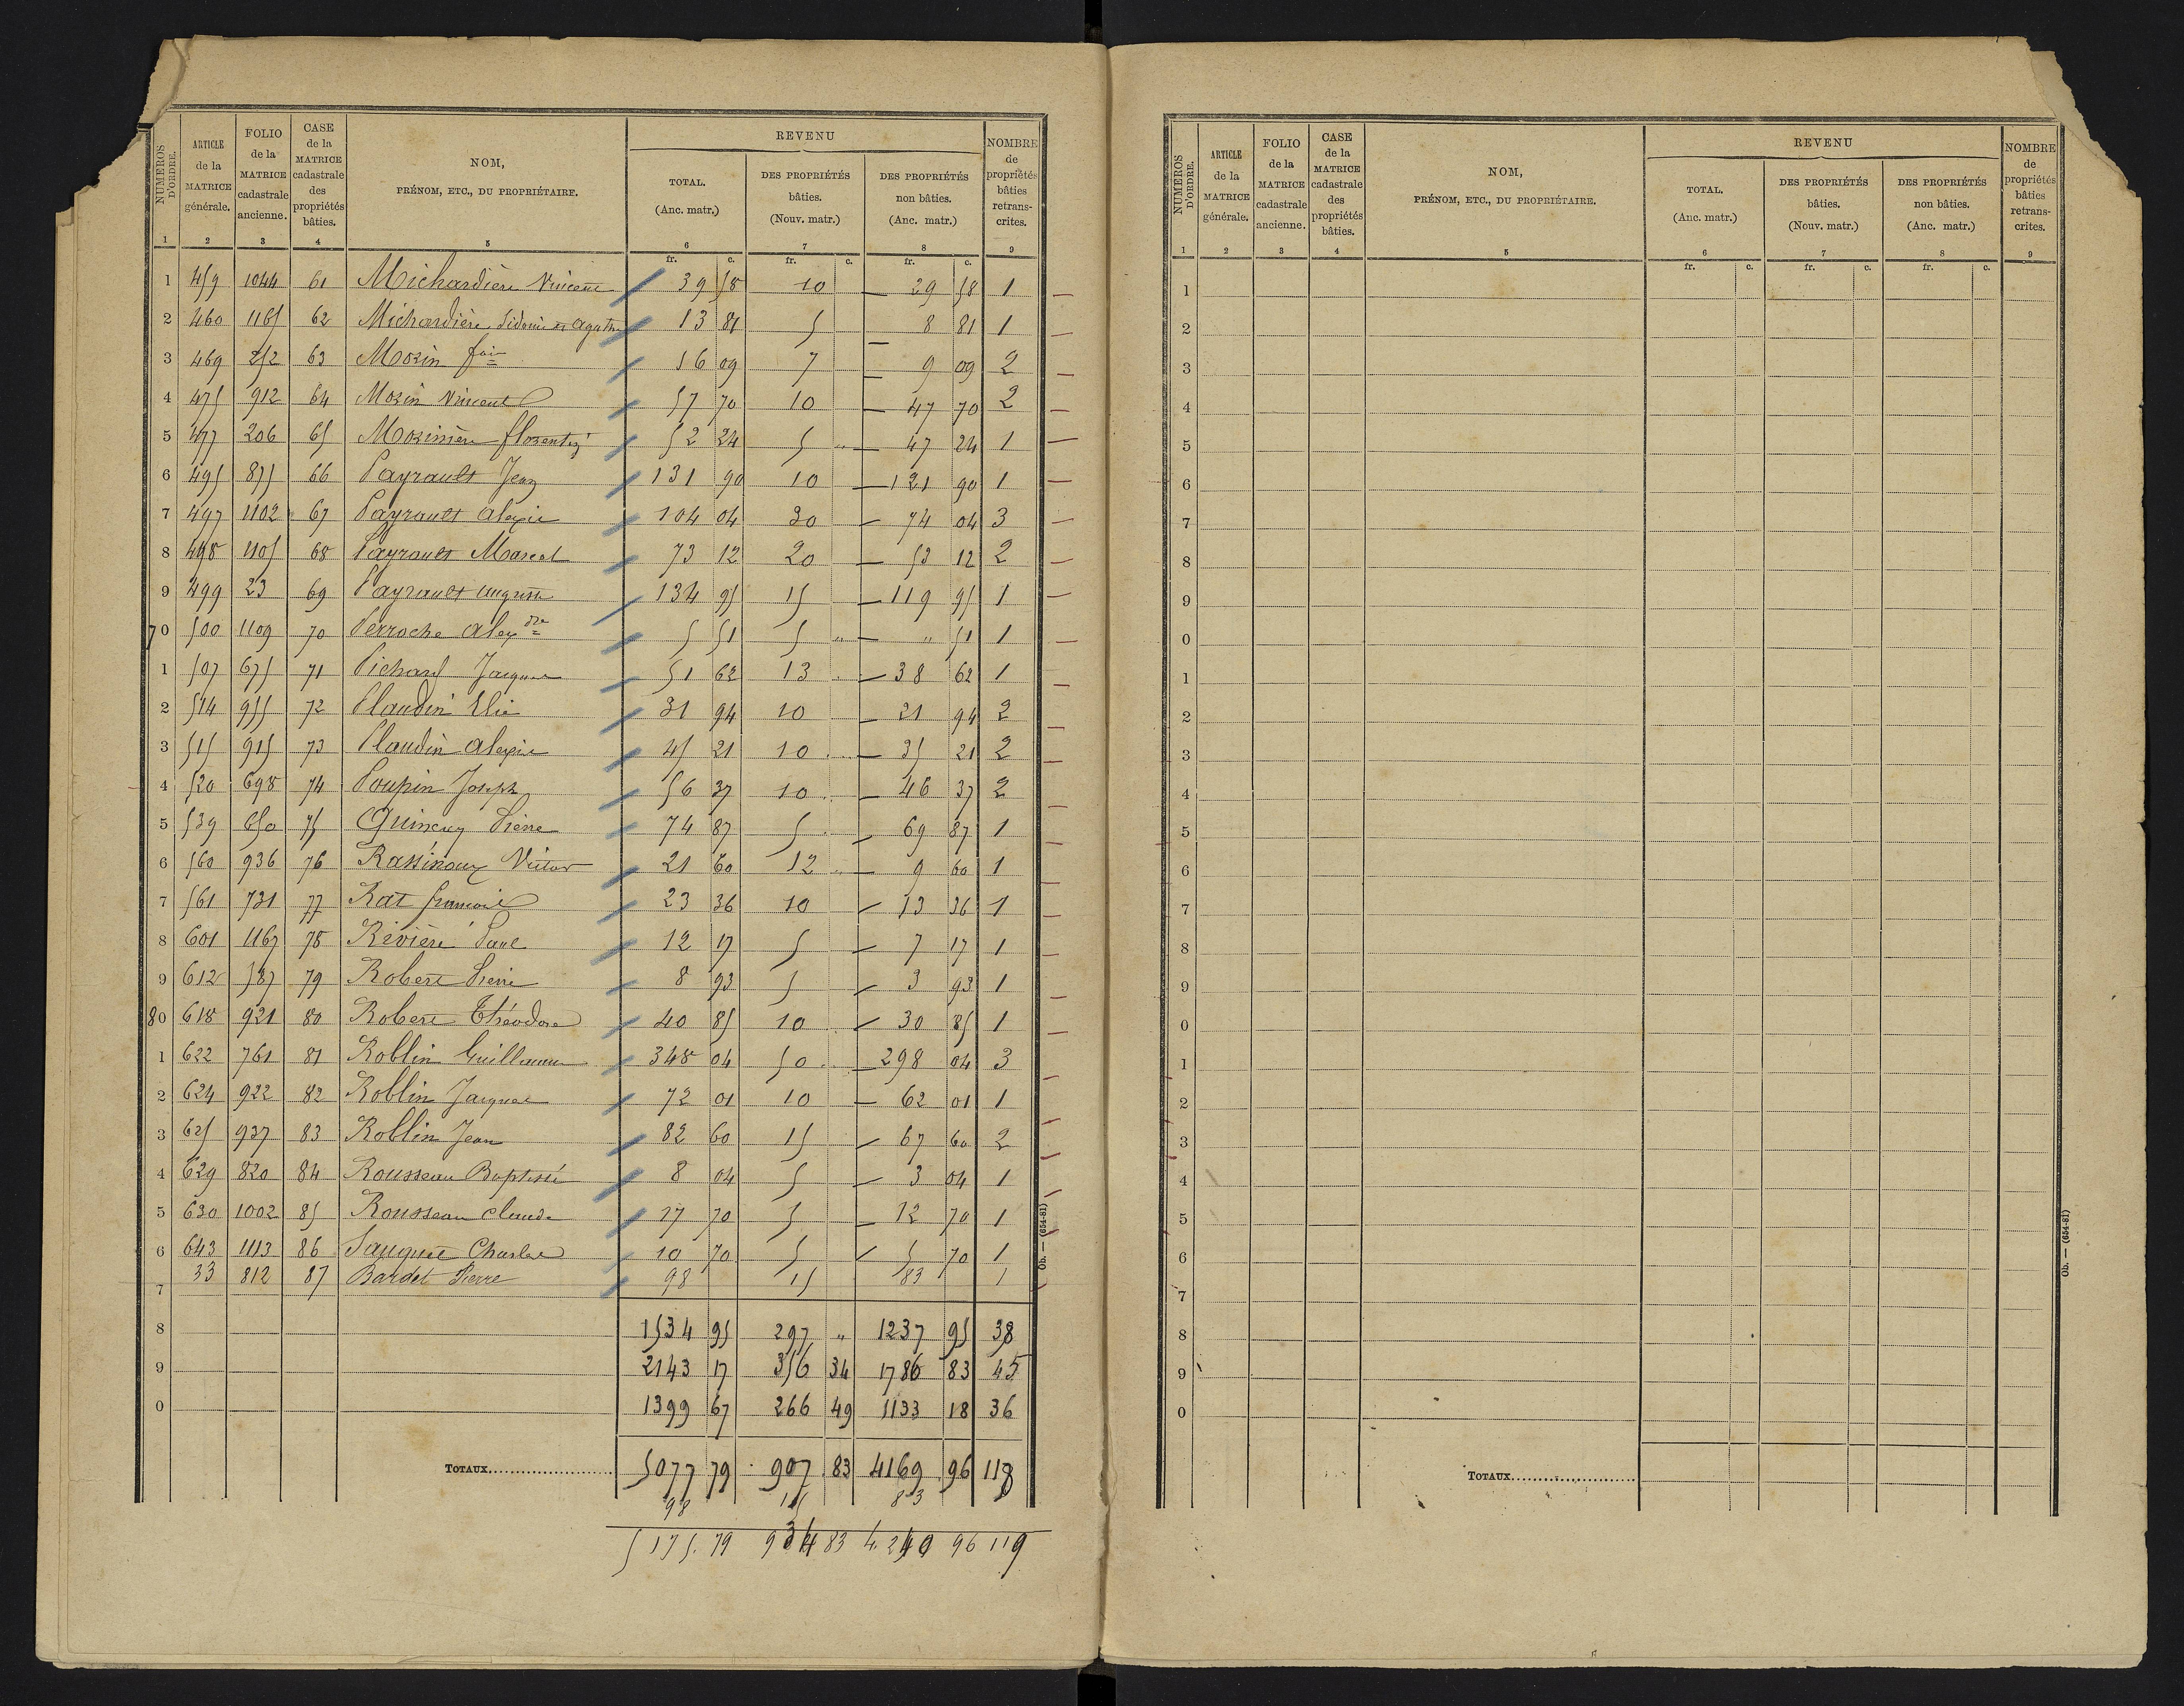 NUMÉROS D'ORDRE. | ARTICLE de la MATRICE générale. | FOLIO de la MATRICE cadastrale ancienne. | CASE de la MATRICE cadastrale des propriétés bâties. | NOM, PRÉNOM, ETC., DU PROPRIÉTAIRE. | REVENU | NOMBRE de propriétés bâties retranscrites.
TOTAL. (Anc. matr.) | DES PROPRIÉTÉS bâties. (Nouv. matr.) | DES PROPRIÉTÉS non bâties. (Anc. matr.)
1 2 3 4 5 6 7 8 9
fr. c. fr. c. fr. c.
1 459 1044 61 Michardière Vincent 39 58 10 — 29 58 1
2 460 1165 62 Michardière, Sidonie et Agathe 13 81 5 — 8 81 1
3 469 63 Morin fois 16 09 7 — 9 09 2
4 475 912 64 Morin Vincent 57 70 10 — 47 70 2
5 477 206 65 Morinière florentin 52 24 5 " — 47 24 1
6 495 875 66 Payrault Jean 131 90 10 — 121 90 1
7 497 1102 67 Payrault Alexis 104 04 30 — 74 04 3
8 498 1105 68 Payrault Marcel 73 12 20 — 53 12 2
9 499 23 69 Payrault auguste 134 95 15 — 119 95 1
70 500 1109 70 Perroche alexdre 5 51 5 " — " 51 1
1 507 675 71 Pichard Jacques 51 62 13 — 38 62 1
2 514 955 72 Plaudin Elie 31 94 10 — 21 94 2
3 515 915 73 Plaudin alexis 45 21 10 — 35 21 2
4 520 698 74 Poupin Joseph 56 37 10 — 46 37 2
5 539 650 75 Quincuy Pierre 74 87 5 — 69 87 1
6 560 936 76 Rassinoux Victor 21 60 12 " — 9 60 1
7 561 731 77 Rat francois 23 36 10 — 13 36 1
8 601 1167 78 Rivière Paul 12 17 5 — 7 17 1
9 612 587 79 Robert Pierre 8 93 5 — 3 93 1
80 618 921 80 Robert Théodore 40 85 10 — 30 85 1
1 622 761 81 Roblin Guillaume 348 04 50 — 298 04 3
2 624 922 82 Roblin Jacques 72 01 10 — 62 01 1
3 625 937 83 Roblin Jean 82 60 15 — 67 60 2
4 629 820 84 Rousseau Baptiste 8 04 5 — 3 04 1
5 630 1002 85 Rousseau Claude 17 70 5 — 12 70 1
6 643 1113 86 Sauquet Charles 10 70 5 — 5 70 1
7 33 812 87 Bardet Pierre 98 15 83 1
8 1534 95 297 " 1237 95 38
9 2143 17 356 34 1786 83 45
0 1399 67 266 49 1133 18 36
TOTAUX 5077 79 907 83 4169 96 118
98 15 83
5175. 79 934 83 4.240 96 119
Ob. — (654-81)
NUMÉROS D'ORDRE. | ARTICLE de la MATRICE générale. | FOLIO de la MATRICE cadastrale ancienne. | CASE de la MATRICE cadastrale des propriétés bâties. | NOM, PRÉNOM, ETC., DU PROPRIÉTAIRE. | REVENU | NOMBRE de propriétés bâties retranscrites.
TOTAL. (Anc. matr.) | DES PROPRIÉTÉS bâties. (Nouv. matr.) | DES PROPRIÉTÉS non bâties. (Anc. matr.)
1 2 3 4 5 6 7 8 9
fr. c. fr. c. fr. c.
1
2
3
4
5
6
7
8
9
0
1
2
3
4
5
6
7
8
9
0
1
2
3
4
5
6
7
8
9
0
TOTAUX
Ob. — (654-81)